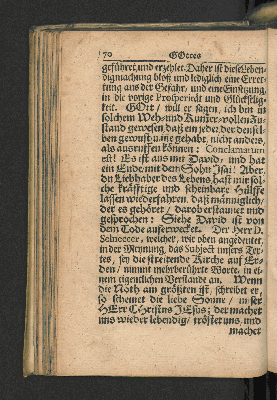 70 GOttes
geführet und erzehlet. Daher ist diese Leben-
digmachung bloß und lediglich eine Erret-
tung aus der Gefahr, und eine Einsetzung
in die vorige Prosperität und Glückselig-
keit. GOtt / will er sagen, ich bin in
solchem Weh- und Kum̃er-vollen Zu-
stand gewesen, daß ein jeder, der densel-
ben gewust, nicht anders,
als ausruffen können: Conclamatum
est! Es ist aus mit David, und hat
ein Ende mit dem Sohn Isai: Aber,
du Liebhaber des Lebens, hast mir sol-
che kräfftige und scheinbare Hülffe
lassen wiederfahren, daß männiglich,
der es gehöret / darob erstaunet und
gesprochen: Siehe David ist von
dem Tode auferwecket. Der Herr D.
Selneccer, welcher, wie oben angedeutet,
in der Meynung, das Subject unsers Tex-
tes, sey die streitende Kirche auf Er-
den / nimmt mehrberührte Worte, in ei-
nem eigentlichen Verstande an. Wenn
die Noth am größten ist, schreibet er,
so scheinet die liebe Sonne / unser
HErr Christus JEsus; der machet
uns wieder lebendig / tröstet uns, und
machet